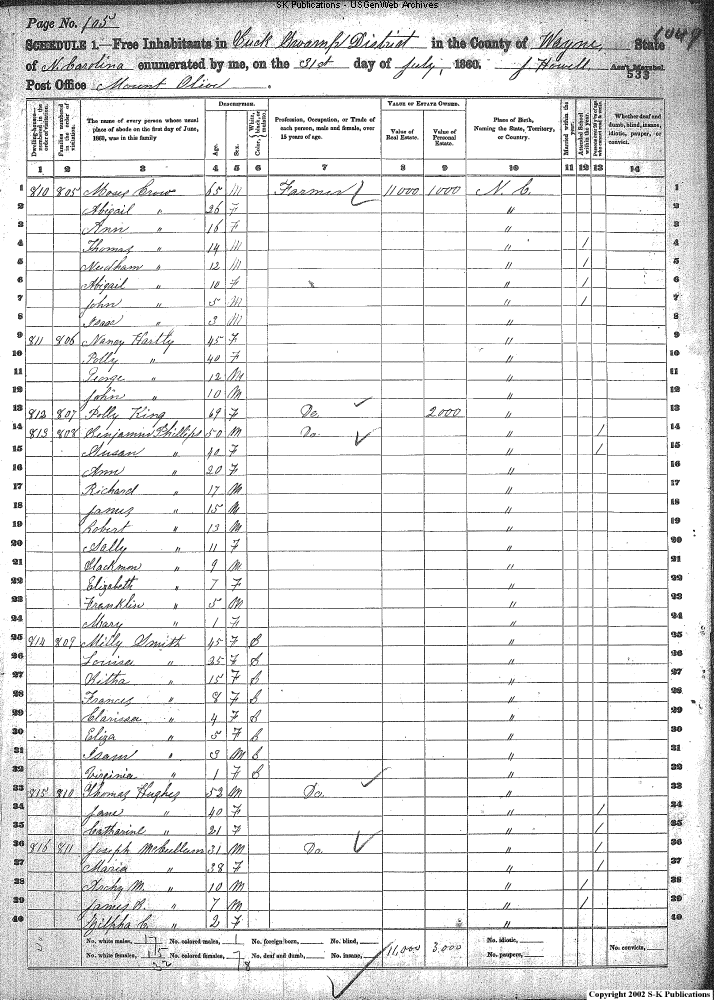 SK Publications - USGenWeb Archives
Page No. 105
1049
SCHEDULE 1.—Free Inhabitants in Buck Swamp District in the County of Wayne, State
of N. Carolina enumerated by me, on the 31st day of July, 1860. J Howell Ass't Marshal.
533
Post Office Mount Olive.
Dwelling-houses—numbered in the order of visitation.
Families numbered in the order of visitation.
The name of every person whose usual place of abode on the first day of June, 1860, was in this family
DESCRIPTION.
Age.
Sex.
Color, White, black, or mulatto.
Profession, Occupation, or Trade of each person, male and female, over 15 years of age.
VALUE OF ESTATE OWNED.
Value of Real Estate.
Value of Personal Estate.
Place of Birth, Naming the State, Territory, or Country.
Married within the year.
Whether deaf and dumb, blind, insane, idiotic, pauper, or convict.
1 2 3 4 5 6 7 8 9 10 11 12 13 14
1 810 805 Moses Crow 65 M Farmer 11000 1000 N. C. 1
2 Abigail " 36 F " 2
3 Ann " 16 F " 3
4 Thomas " 14 M " / 4
5 Needham " 12 M " / 5
6 Abigail " 10 F " / 6
7 John " 5 M " / 7
8 Isaac " 3 M " 8
9 811 806 Nancy Hartly 45 F " 9
10 Polly " 40 F " 10
11 George " 12 M " 11
12 John " 10 M " 12
13 812 807 Polly King 69 F Do. 2000 " 13
14 813 808 Benjamin Phillips 50 M Do. " / 14
15 Susan " 40 F " / 15
16 Ann " 20 F " 16
17 Richard " 17 M " 17
18 James " 15 M " 18
19 Robert " 13 M " 19
20 Sally " 11 F " 20
21 Blackmon " 9 M " 21
22 Elizabeth " 7 F " 22
23 Franklin " 5 M " 23
24 Mary " 1 F " 24
25 814 809 Milly Smith 45 F B " 25
26 Louisa " 25 F B " 26
27 " 15 F B " 27
28 Frances " 8 F B " 28
29 Clarissa " 4 F B " 29
30 Eliza " 5 F B " 30
31 Isam " 3 M B " 31
32 Virginia " 1 F B " 32
33 815 810 Thomas Hughes 52 M Do. " 33
34 Jane " 40 F " / 34
35 Catharine " 21 F " / 35
36 816 811 Joseph McCullum 31 M Do. " / 36
37 Maria " 38 F " / 37
38 Archy M. " 10 M " / 38
39 James R. " 7 M " / 39
40 Zilpha C. " 2 F " 40
No. white males, 17 No. colored males, 1 No. foreign born, No. blind, 11,000 3,000 No. idiotic, No. convicts,
No. white females, 15 No. colored females, 7 No. deaf and dumb, No. insane, No. paupers,
8
Copyright 2002 S-K Publications